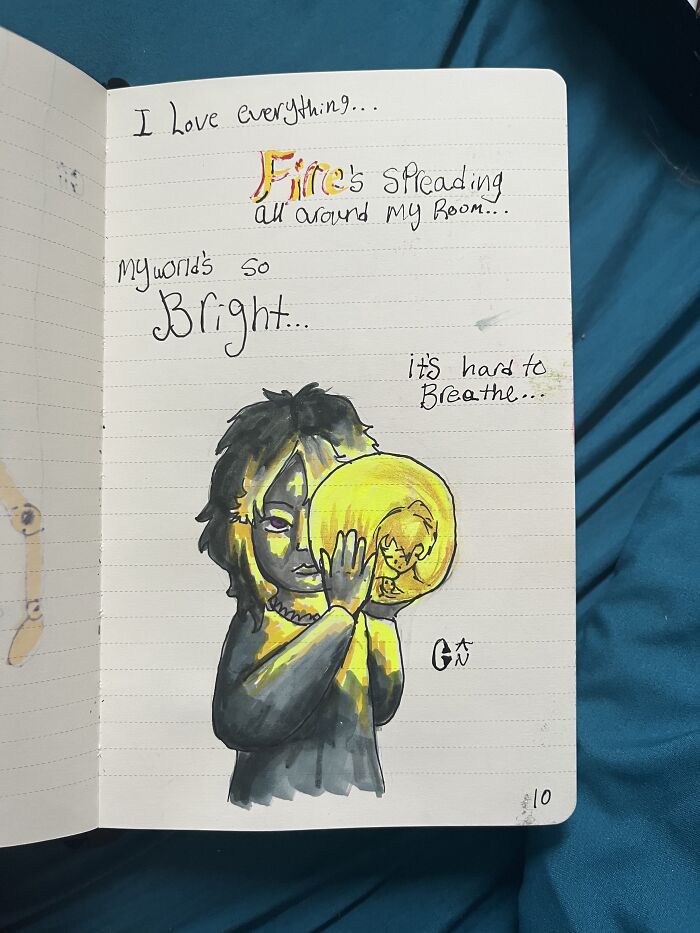 I Love everything...
Fire's spreading
all around my Room...
my world's so
Bright...
it's hard to
Breathe...
10